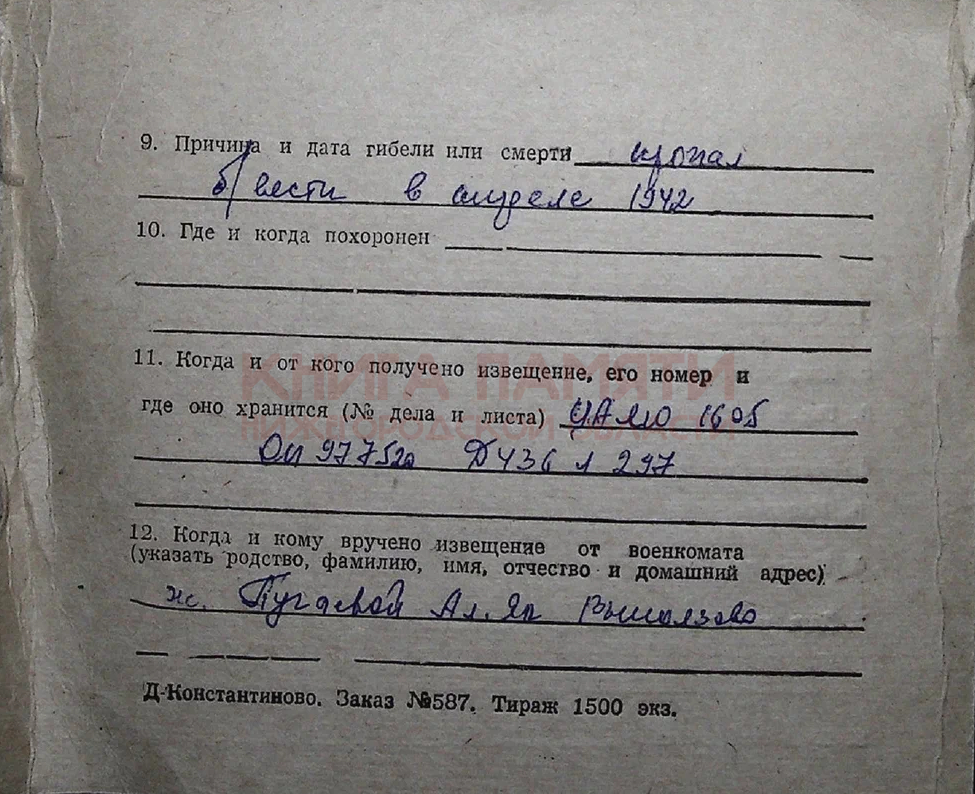 9. Причина и дата гибели или смерти пропал
б/вести в апреле 1942
10. Где и когда похоронен
11. Когда и от кого получено извещение, его номер и
КНИГА ПАМЯТИ
где оно хранится (№ дела и листа) ЦАМО
НИЖЕГОРОДСКОЙ ОБЛАСТИ
Оп 977520 Д 436 л 297
12. Когда и кому вручено извещение от военкомата
(указать родство, фамилию, имя, отчество и домашний адрес)
ж. Пугаевой Ал. Як
Д-Константиново. Заказ №587. Тираж 1500 экз.